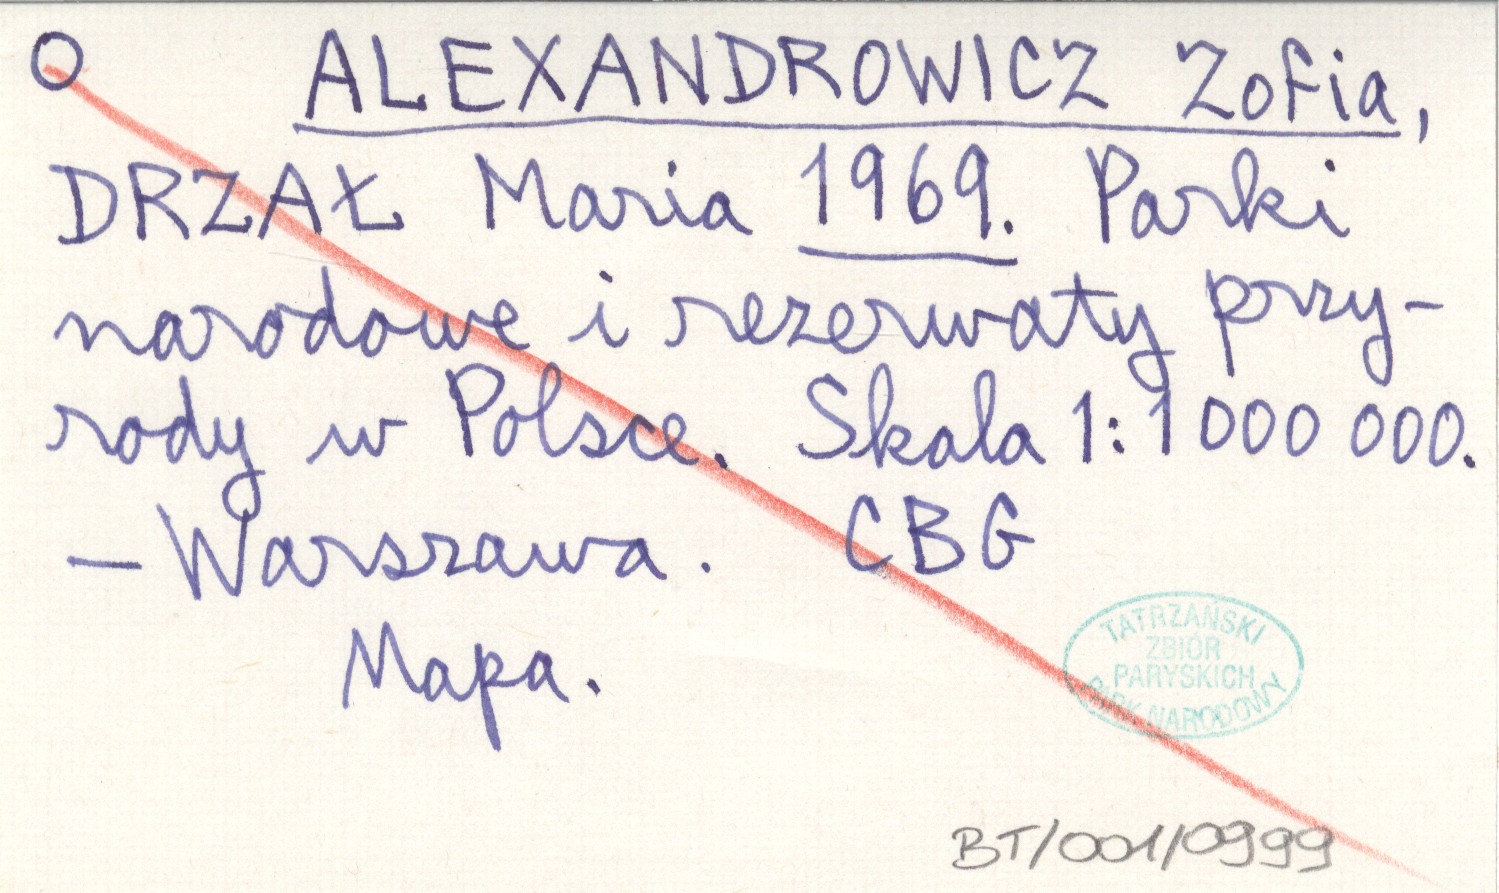 O ALEXANDROWICZ Zofia,
DRZAŁ Maria 1969. Parki
narodowe i rezerwaty przy-
rody w Polsce. Skala 1:1 000 000.
— Warszawa. CBG
Mapa.
TATRZAŃSKI
ZBIÓR
PARYSKICH
PARK NARODOWY
BT/001/0999